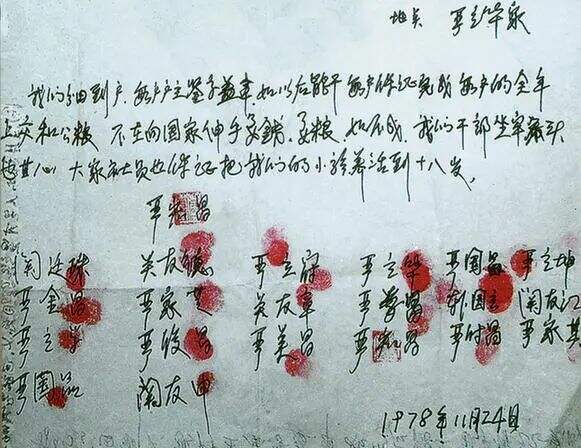 地点 严立华家
我们分田到户,每户户主签字盖章,如以后能干,每户保证完成每户的全年
上交和公粮 不在向国家伸手要钱,要粮,如不成,我们干部坐牢杀头
也甘心,大家社员也保证把我们的小孩养活到十八岁。
严宏昌
关廷珠 关友德 严立符 严立华 严国昌 严立坤
严金昌 严家芝 关友章 严学昌 韩国云 关友江
严立学 严俊昌 严美昌 严宏昌 严付昌 严家其
严国品 关友申
1978年11月24日